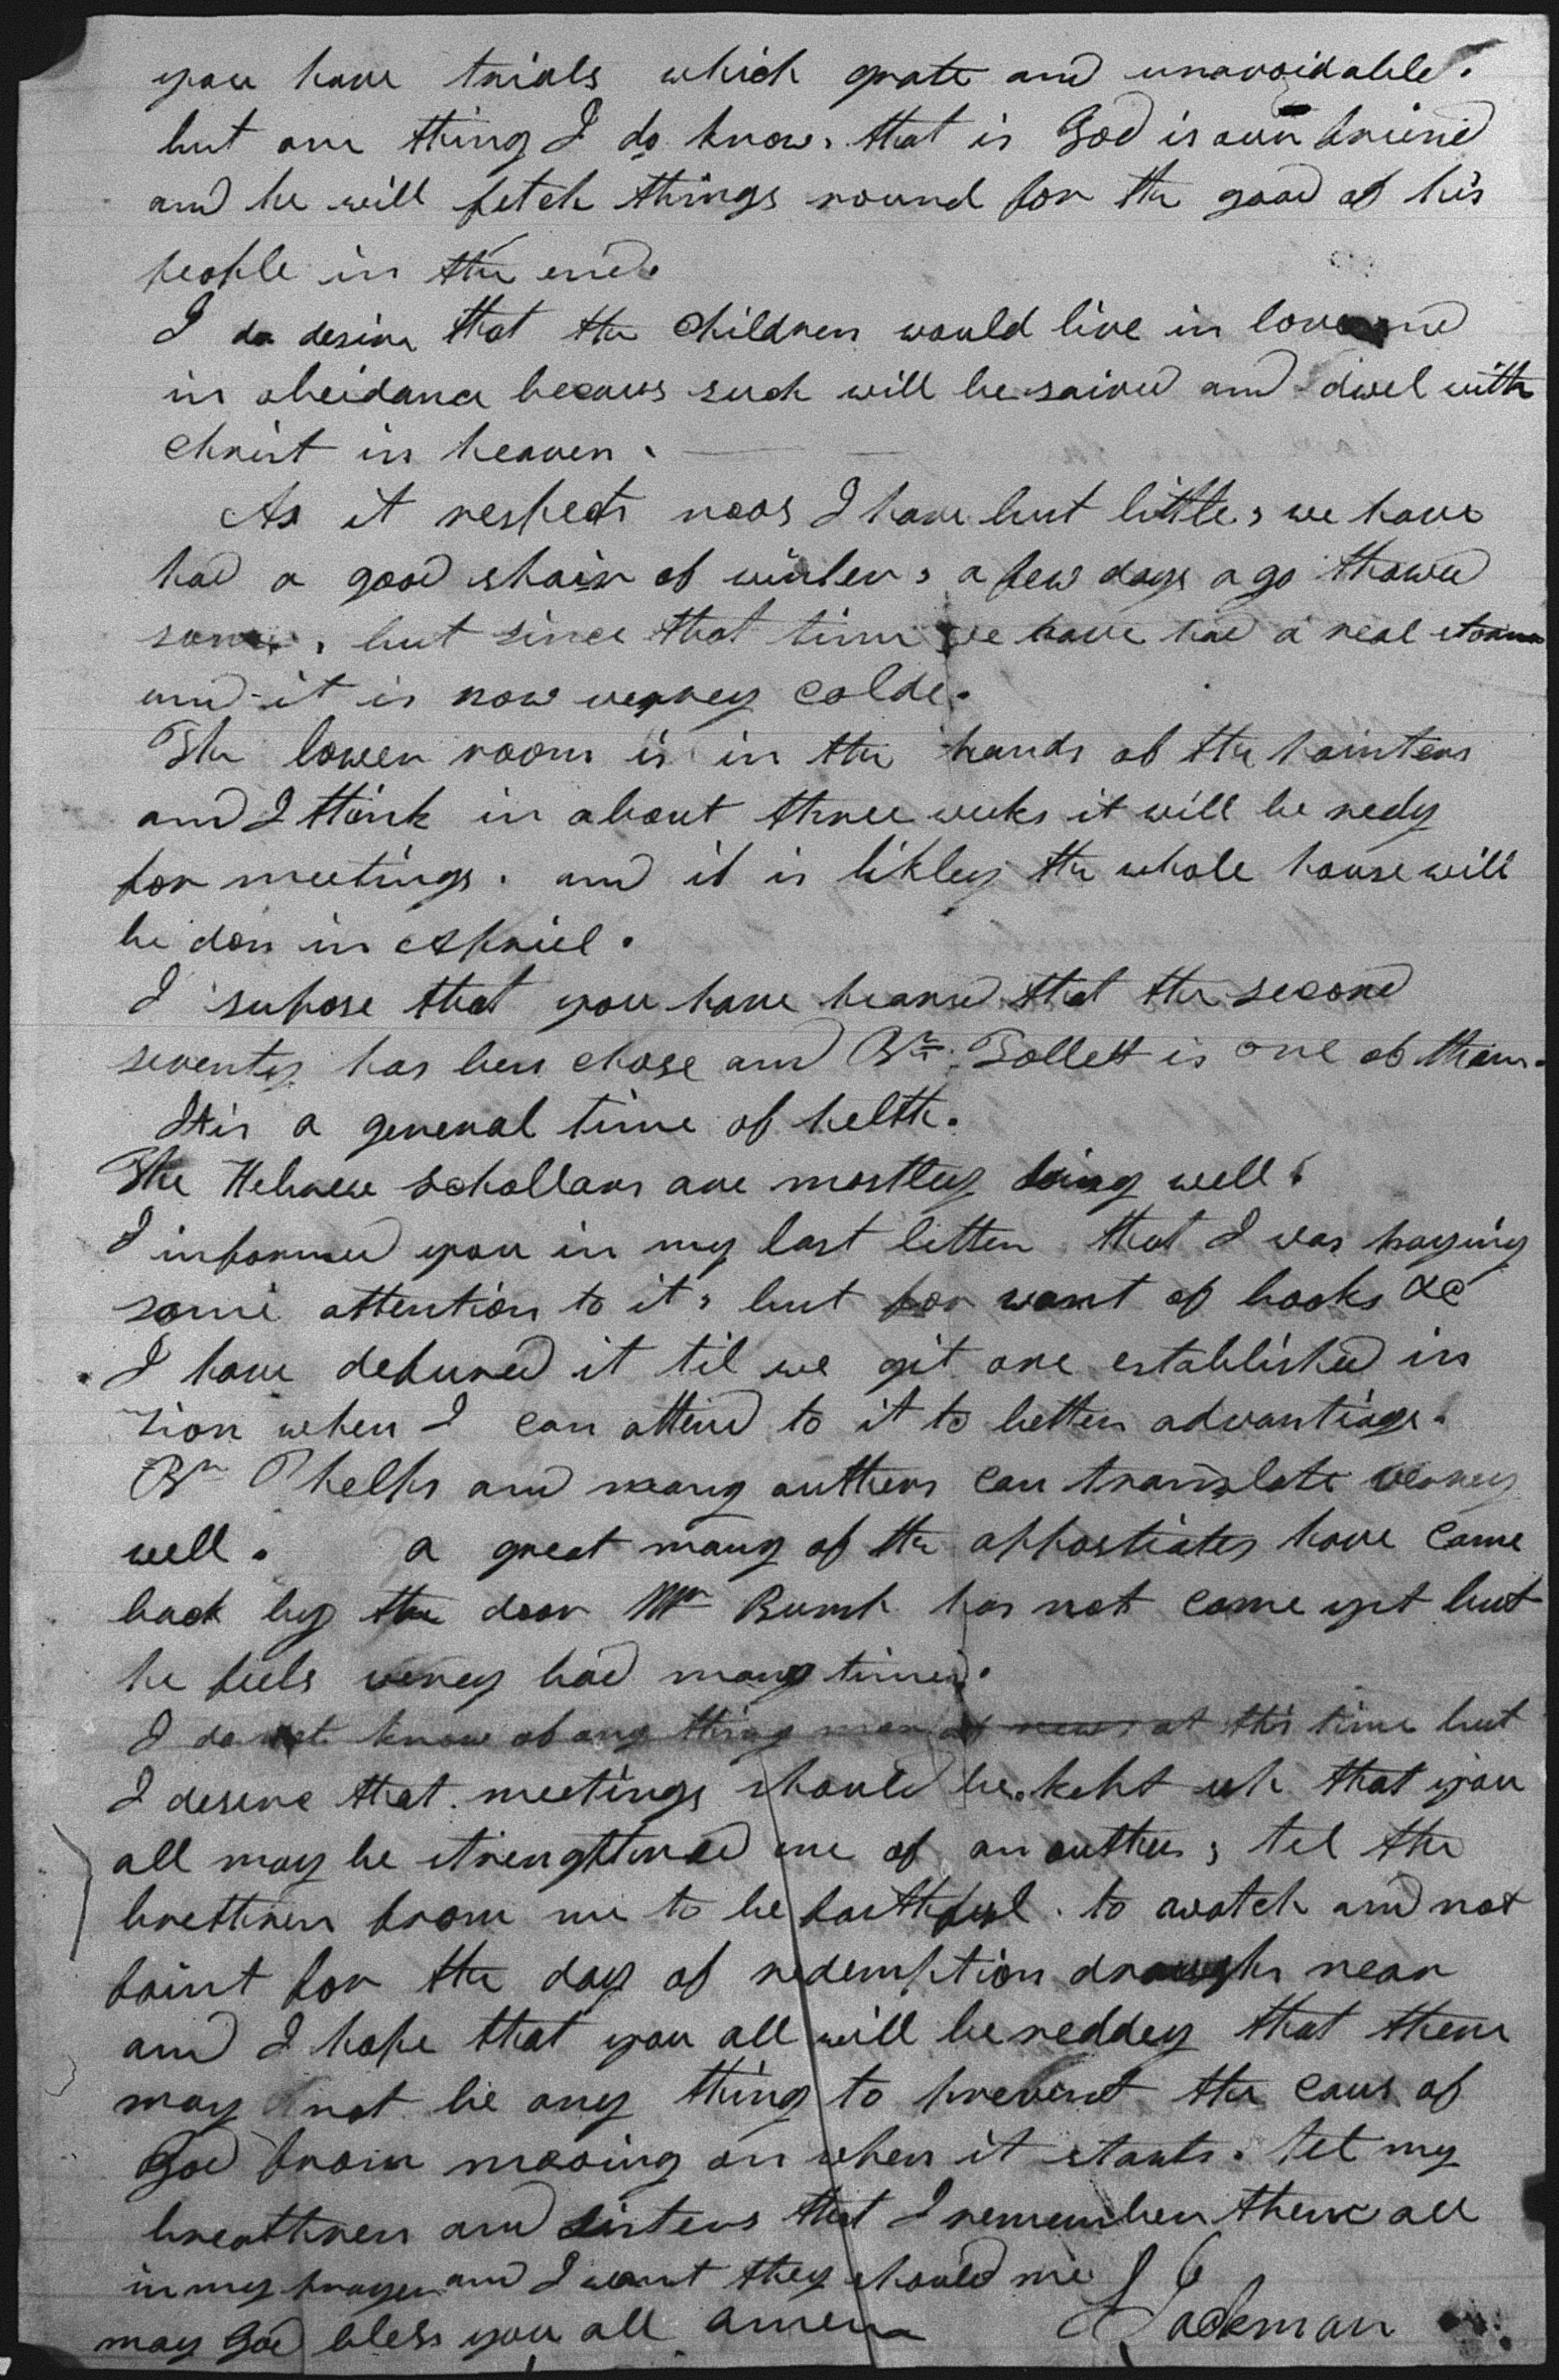 you have trials which grate and unavoidable.
but one thing I do know, that is God is our friend
and he will fetch things round for the good of his
people in the end.
I do desire that the children would live in love and
in obeidance becaus such will be saived and dwel with
Christ in heaven.
As it respects noos I have but little, we have
had a good shair of winter, a few days ago thawed
some, but since that time we have had a real storm
and it is now verrey colde.
The lower room is in the hands of the painters
and I think in about three weeks it will be redy
for meetings. and it is likley the whole house will
be don in Apriel.
I supose that you have heared that the second
seventy has ben chose and Br. Tollett is one of them.
It is a general time of helth.
The Hebrew schollars are mostley doing well.
I informed you in my last letter that I was paying
some attention to it, but for want of books &c
I have defured it til we git one established in
zion when I can attend to it to better advantiage.
Br Phelps and meany authers can translate verrey
well. a great many of the appostiates have come
back by the door Mr Bump has not come yet but
he feels verrey bad many times.
I do not know of any thing more of news at this time but
I desire that meetings should be kept up that you
all may be strenghtined one of an auther, tel the
brethren from me to be faithful. to watch and not
faint for the day of redemption draughs near
and I hope that you all will be reddey that there
may not be any thing to prevent the caus of
God from mooving on when it starts. tel my
breathren and sisters that I remember them all
in my prayer and I want they should me
may God bless you all amen Jackman